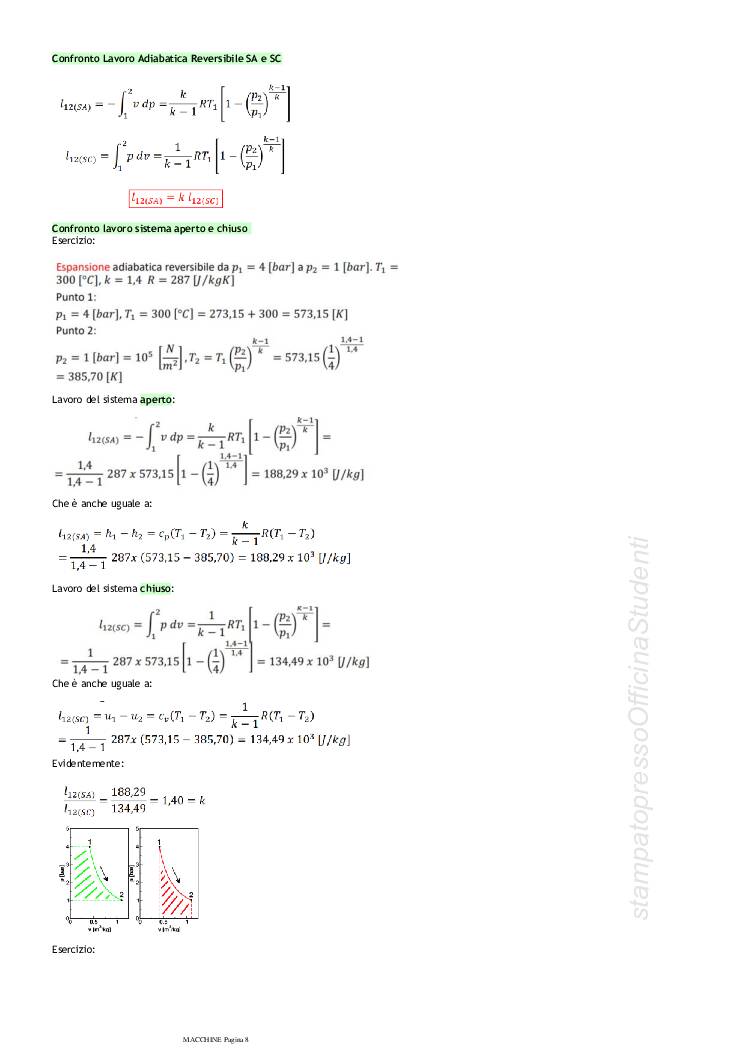 Confronto Lavoro Adiabatica Reversibile SA e SC
l₁₂(SA) = −∫₁² v dp = k/(k−1) RT₁ [1 − (p₂/p₁)^((k−1)/k)]
l₁₂(SC) = ∫₁² p dv = 1/(k−1) RT₁ [1 − (p₂/p₁)^((k−1)/k)]
l₁₂(SA) = k l₁₂(SC)
Confronto lavoro sistema aperto e chiuso
Esercizio:
Espansione adiabatica reversibile da p₁ = 4 [bar] a p₂ = 1 [bar]. T₁ =
300 [°C], k = 1,4 R = 287 [J/kgK]
Punto 1:
p₁ = 4 [bar], T₁ = 300 [°C] = 273,15 + 300 = 573,15 [K]
Punto 2:
p₂ = 1 [bar] = 10⁵ [N/m²], T₂ = T₁ (p₂/p₁)^((k−1)/k) = 573,15 (1/4)^((1,4−1)/1,4)
= 385,70 [K]
Lavoro del sistema aperto:
l₁₂(SA) = −∫₁² v dp = k/(k−1) RT₁ [1 − (p₂/p₁)^((k−1)/k)] =
= 1,4/(1,4−1) 287 x 573,15 [1 − (1/4)^((1,4−1)/1,4)] = 188,29 x 10³ [J/kg]
Che è anche uguale a:
l₁₂(SA) = h₁ − h₂ = cₚ(T₁ − T₂) = k/(k−1) R(T₁ − T₂)
= 1,4/(1,4−1) 287x (573,15 − 385,70) = 188,29 x 10³ [J/kg]
Lavoro del sistema chiuso:
l₁₂(SC) = ∫₁² p dv = 1/(k−1) RT₁ [1 − (p₂/p₁)^((k−1)/k)] =
= 1/(1,4−1) 287 x 573,15 [1 − (1/4)^((1,4−1)/1,4)] = 134,49 x 10³ [J/kg]
Che è anche uguale a:
l₁₂(SC) = u₁ − u₂ = cᵥ(T₁ − T₂) = 1/(k−1) R(T₁ − T₂)
= 1/(1,4−1) 287x (573,15 − 385,70) = 134,49 x 10³ [J/kg]
Evidentemente:
l₁₂(SA)/l₁₂(SC) = 188,29/134,49 = 1,40 = k
5 4 3 2 1 0
p [bar]
1 2
0 0.5 1
v [m³/kg]
5 4 3 2 1 0
p [bar]
1 2
0 0.5 1
v [m³/kg]
Esercizio:
MACCHINE Pagina 8
stampatopressoOfficinaStudenti